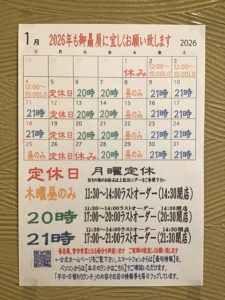 1月 2026年も御贔屓に宜しくお願い致します 2026
1 2 3
休み 12:00〜15:00LO 12:00〜15:00LO
4 5 6 7 8 9 10
12:00〜15:00LO 定休日 20時 20時 昼のみ 21時 21時
11 12 13 14 15 16 17
21時 定休日 20時 20時 昼のみ 21時 21時
18 19 20 21 22 23 24
昼のみ 定休日 20時 20時 昼のみ 21時 21時
25 26 27 28 29 30 31
昼のみ 定休日 20時 20時 昼のみ 21時 21時
定休日 月曜定休
木曜昼のみ 11:30〜14:00ラストオーダー(14:30閉店)
20時 11:30〜14:00ラストオーダー(14:30閉店)
17:00〜20:00ラストオーダー(20:30閉店)
21時 11:30〜14:00ラストオーダー(14:30閉店)
17:00〜21:00ラストオーダー(21:30閉店)